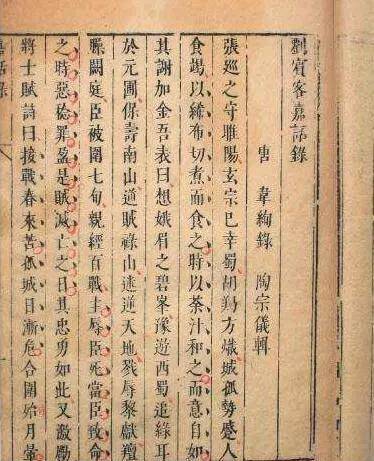 劉賓客嘉話錄
唐 韋絢錄 陶宗儀輯
張巡之守睢陽玄宗已幸蜀胡羯方熾城孤勢蹙人
食竭以紙布切煮而食之時以茶汁和之而意自如
其謝加金吾表曰想峨眉之碧峯豫遊西蜀追綠耳
於元圃保壽南山逆賊祿山迷逆天地戮辱黎獻羶
臊闕庭臣被圍七旬親經百戰主辱臣死當臣致命
之時惡稔罪盈是賊滅亡之日其忠勇如此又激勵
將士賦詩曰接戰春來苦孤城日漸危合圍始月暈